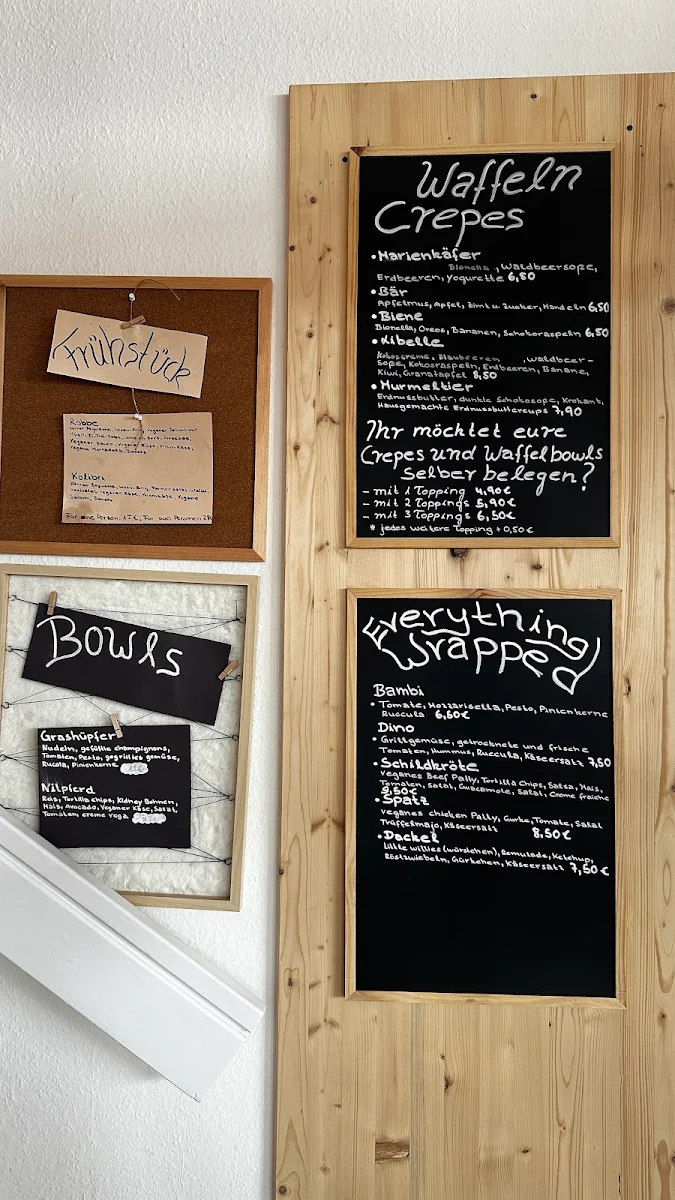 Waffeln
Crepes
• Marienkäfer
Bionella, Waldbeersoße,
Erdbeeren, Yogurette 6,50
• Bär
Apfelmus, Apfel, Zimt u. Zucker, Mandeln 6,50
• Biene
Bionella, Oreos, Bananen, Schokoraspeln 6,50
• Libelle
Kokoscreme, Blaubeeren , Waldbeer-
soße, Kokosraspeln, Erdbeeren, Banane,
Kiwi, Granatapfel 8,50
• Murmeltier
Erdnussbutter, dunkle Schokosoße, Krokant,
Hausgemachte Erdnussbuttercups 7,90
Ihr möchtet eure
Crepes und Waffelbowls
Selber belegen?
- mit 1 Topping 4,90€
- mit 2 Toppings 5,90€
- mit 3 Toppings 6,50€
* jedes weitere Topping + 0,50€
Frühstück
Robbe
Kolibri
Bowls
Grashüpfer
Nudeln, gefüllte Champignons,
Tomaten, Pesto, gegrilltes Gemüse,
Rucola, Pinienkerne
Nilpferd
Reis, Tortilla Chips, Kidney Bohnen,
Mais, Avocado, Veganer Käse, Salat,
Tomaten, creme vega
Everything
Wrapped
Bambi
• Tomate, Mozzarisella, Pesto, Pinienkerne
Ruccula 6,60€
Dino
• Grillgemüse, getrocknete und frische
Tomaten, Hummus, Ruccula, Käseersatz 7,50
• Schildkröte
Veganes Beef Patty, Tortilla Chips, Salsa, Mais,
Tomaten, Salat, Guacamole, Salat, Creme fraiche
9,50€
• Spatz
veganes chicken Patty, Gurke, Tomate, Salat
Trüffelmajo, Käseersatz 8,50€
• Dackel
Little willies (würstchen), Remulade, Ketchup,
Röstzwiebeln, Gürkchen, Käseersatz 7,50€